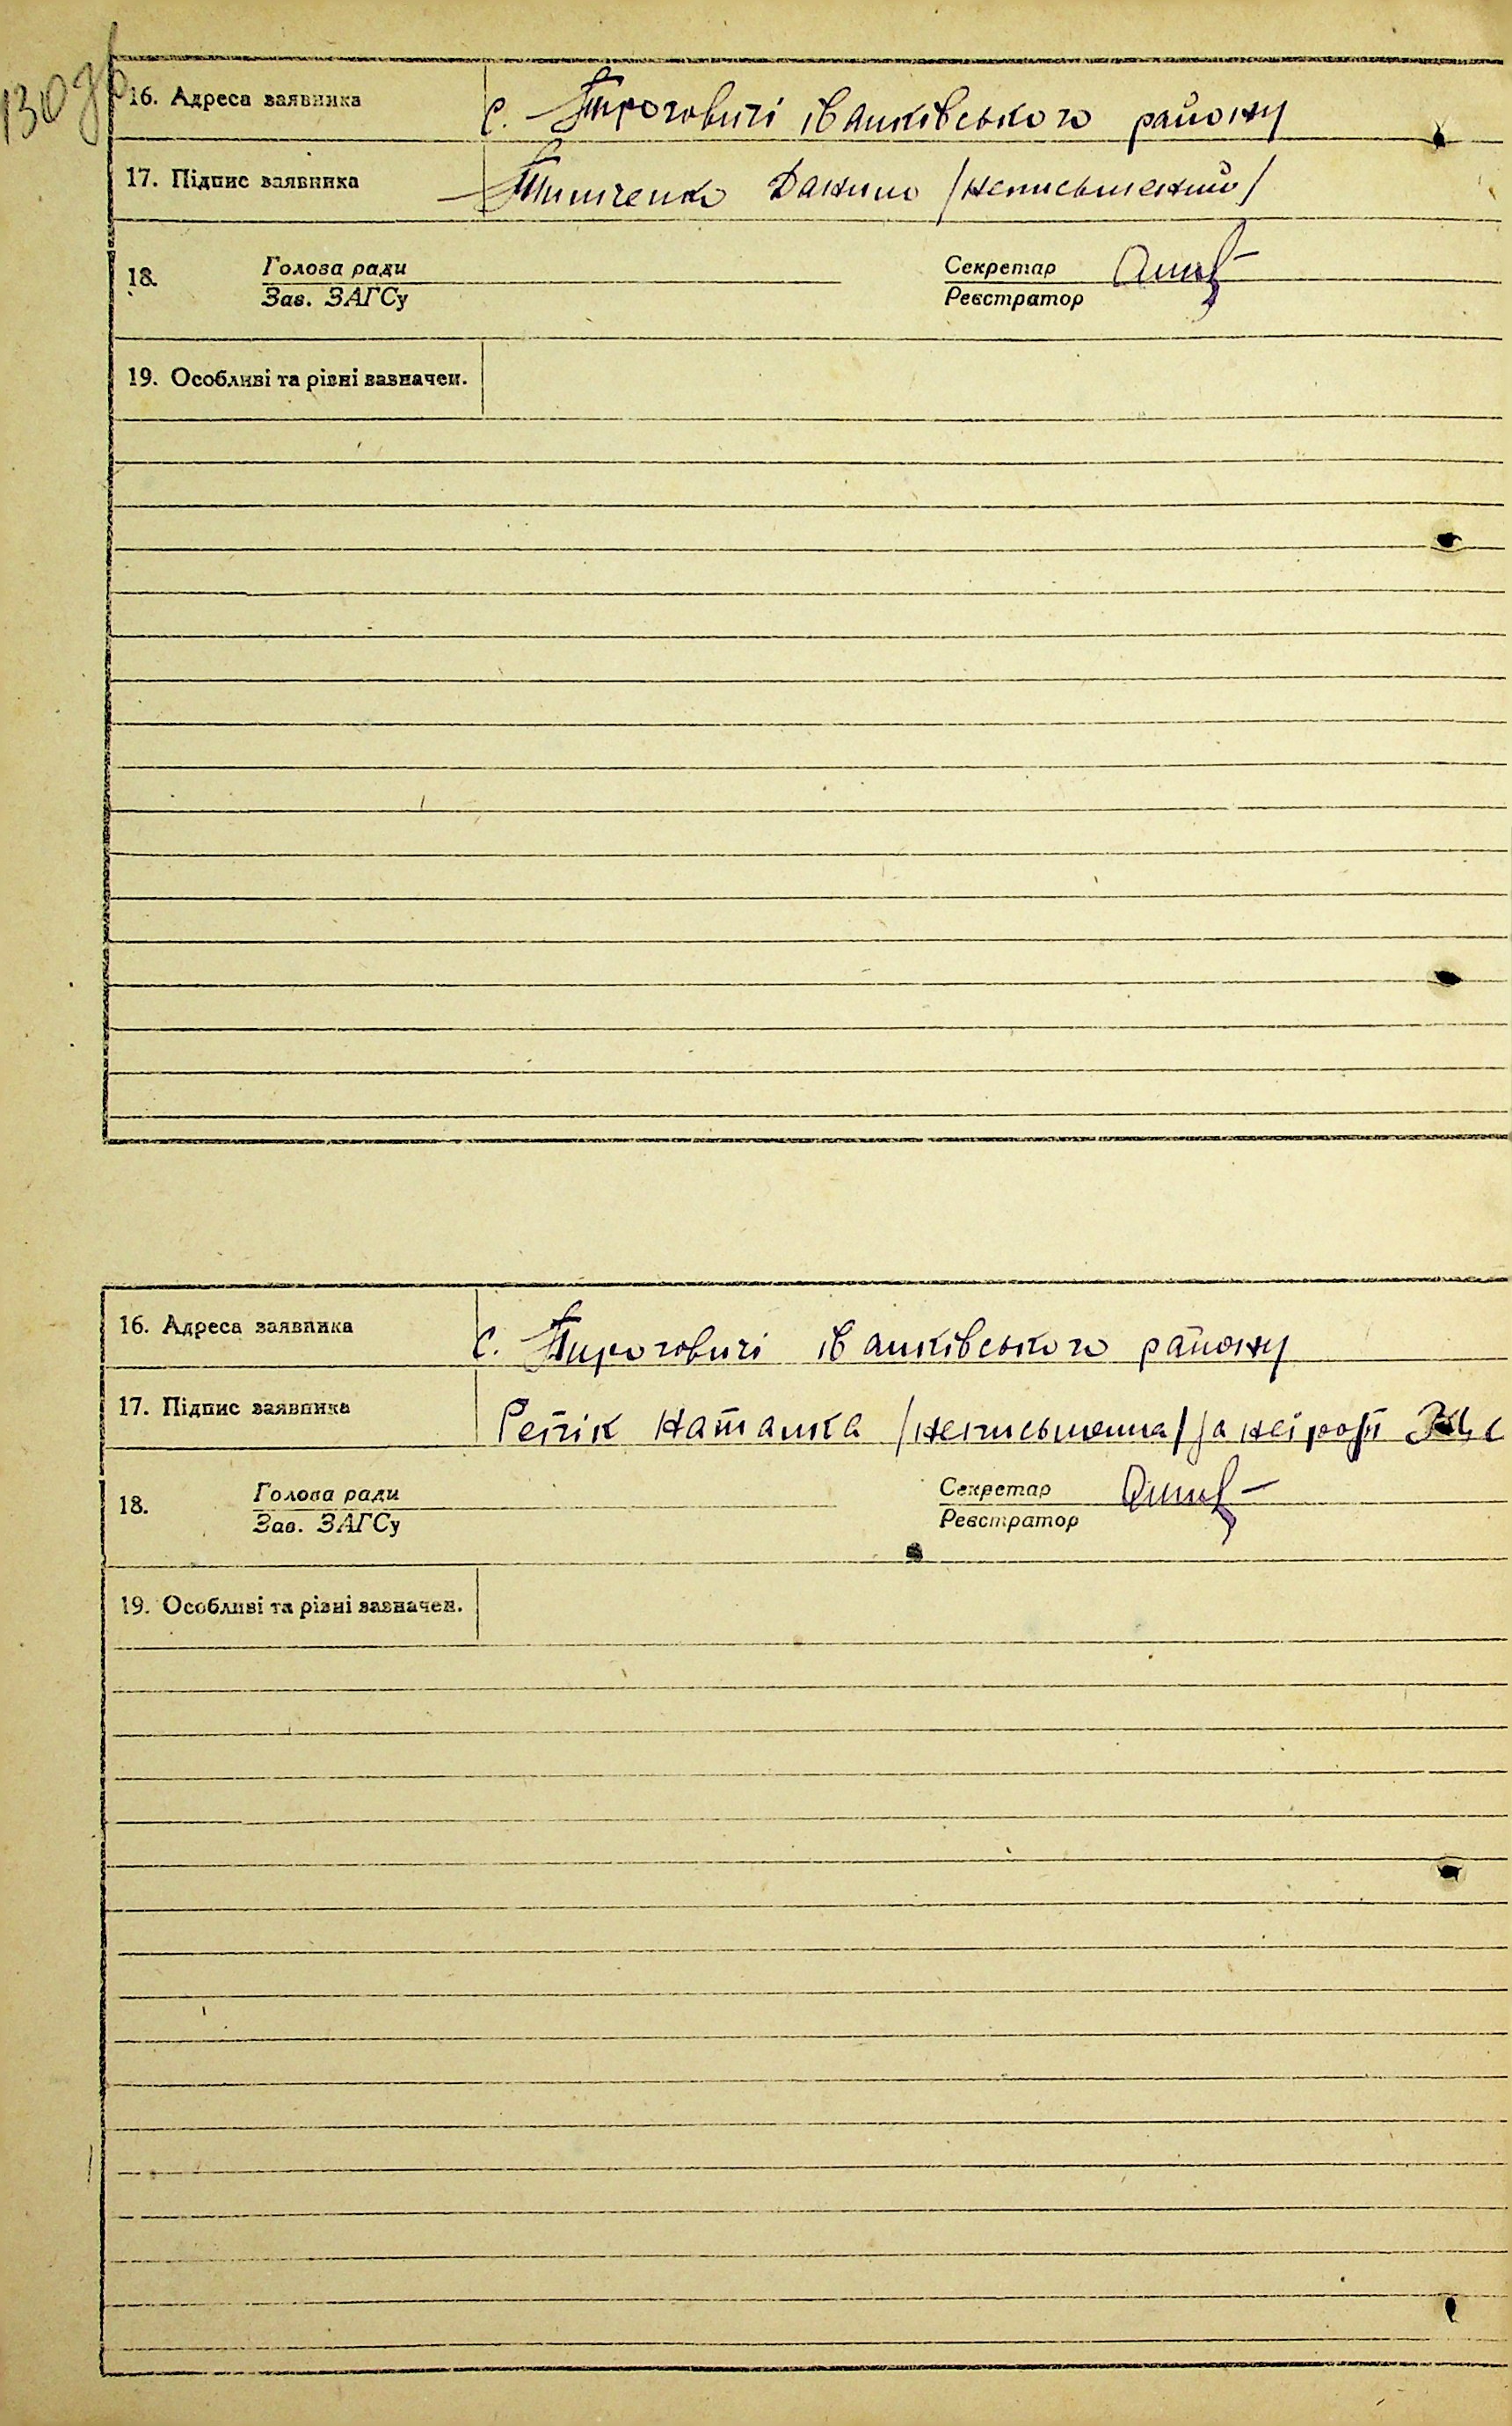 130зв
16. Адреса заявника с. Пироговичі іванківського району
17. Підпис заявника Тимченко Данило /неписьменний/
18. Голова ради Секретар
Зав. ЗАГСу Реєстратор
19. Особливі та різні зазначен.
16. Адреса заявника с. Пироговичі іванківського району
17. Підпис заявника Репік Наталка /неписьменна/ за неї розп
18. Голова ради Секретар
Зав. ЗАГСу Реєстратор
19. Особливі та різні зазначен.